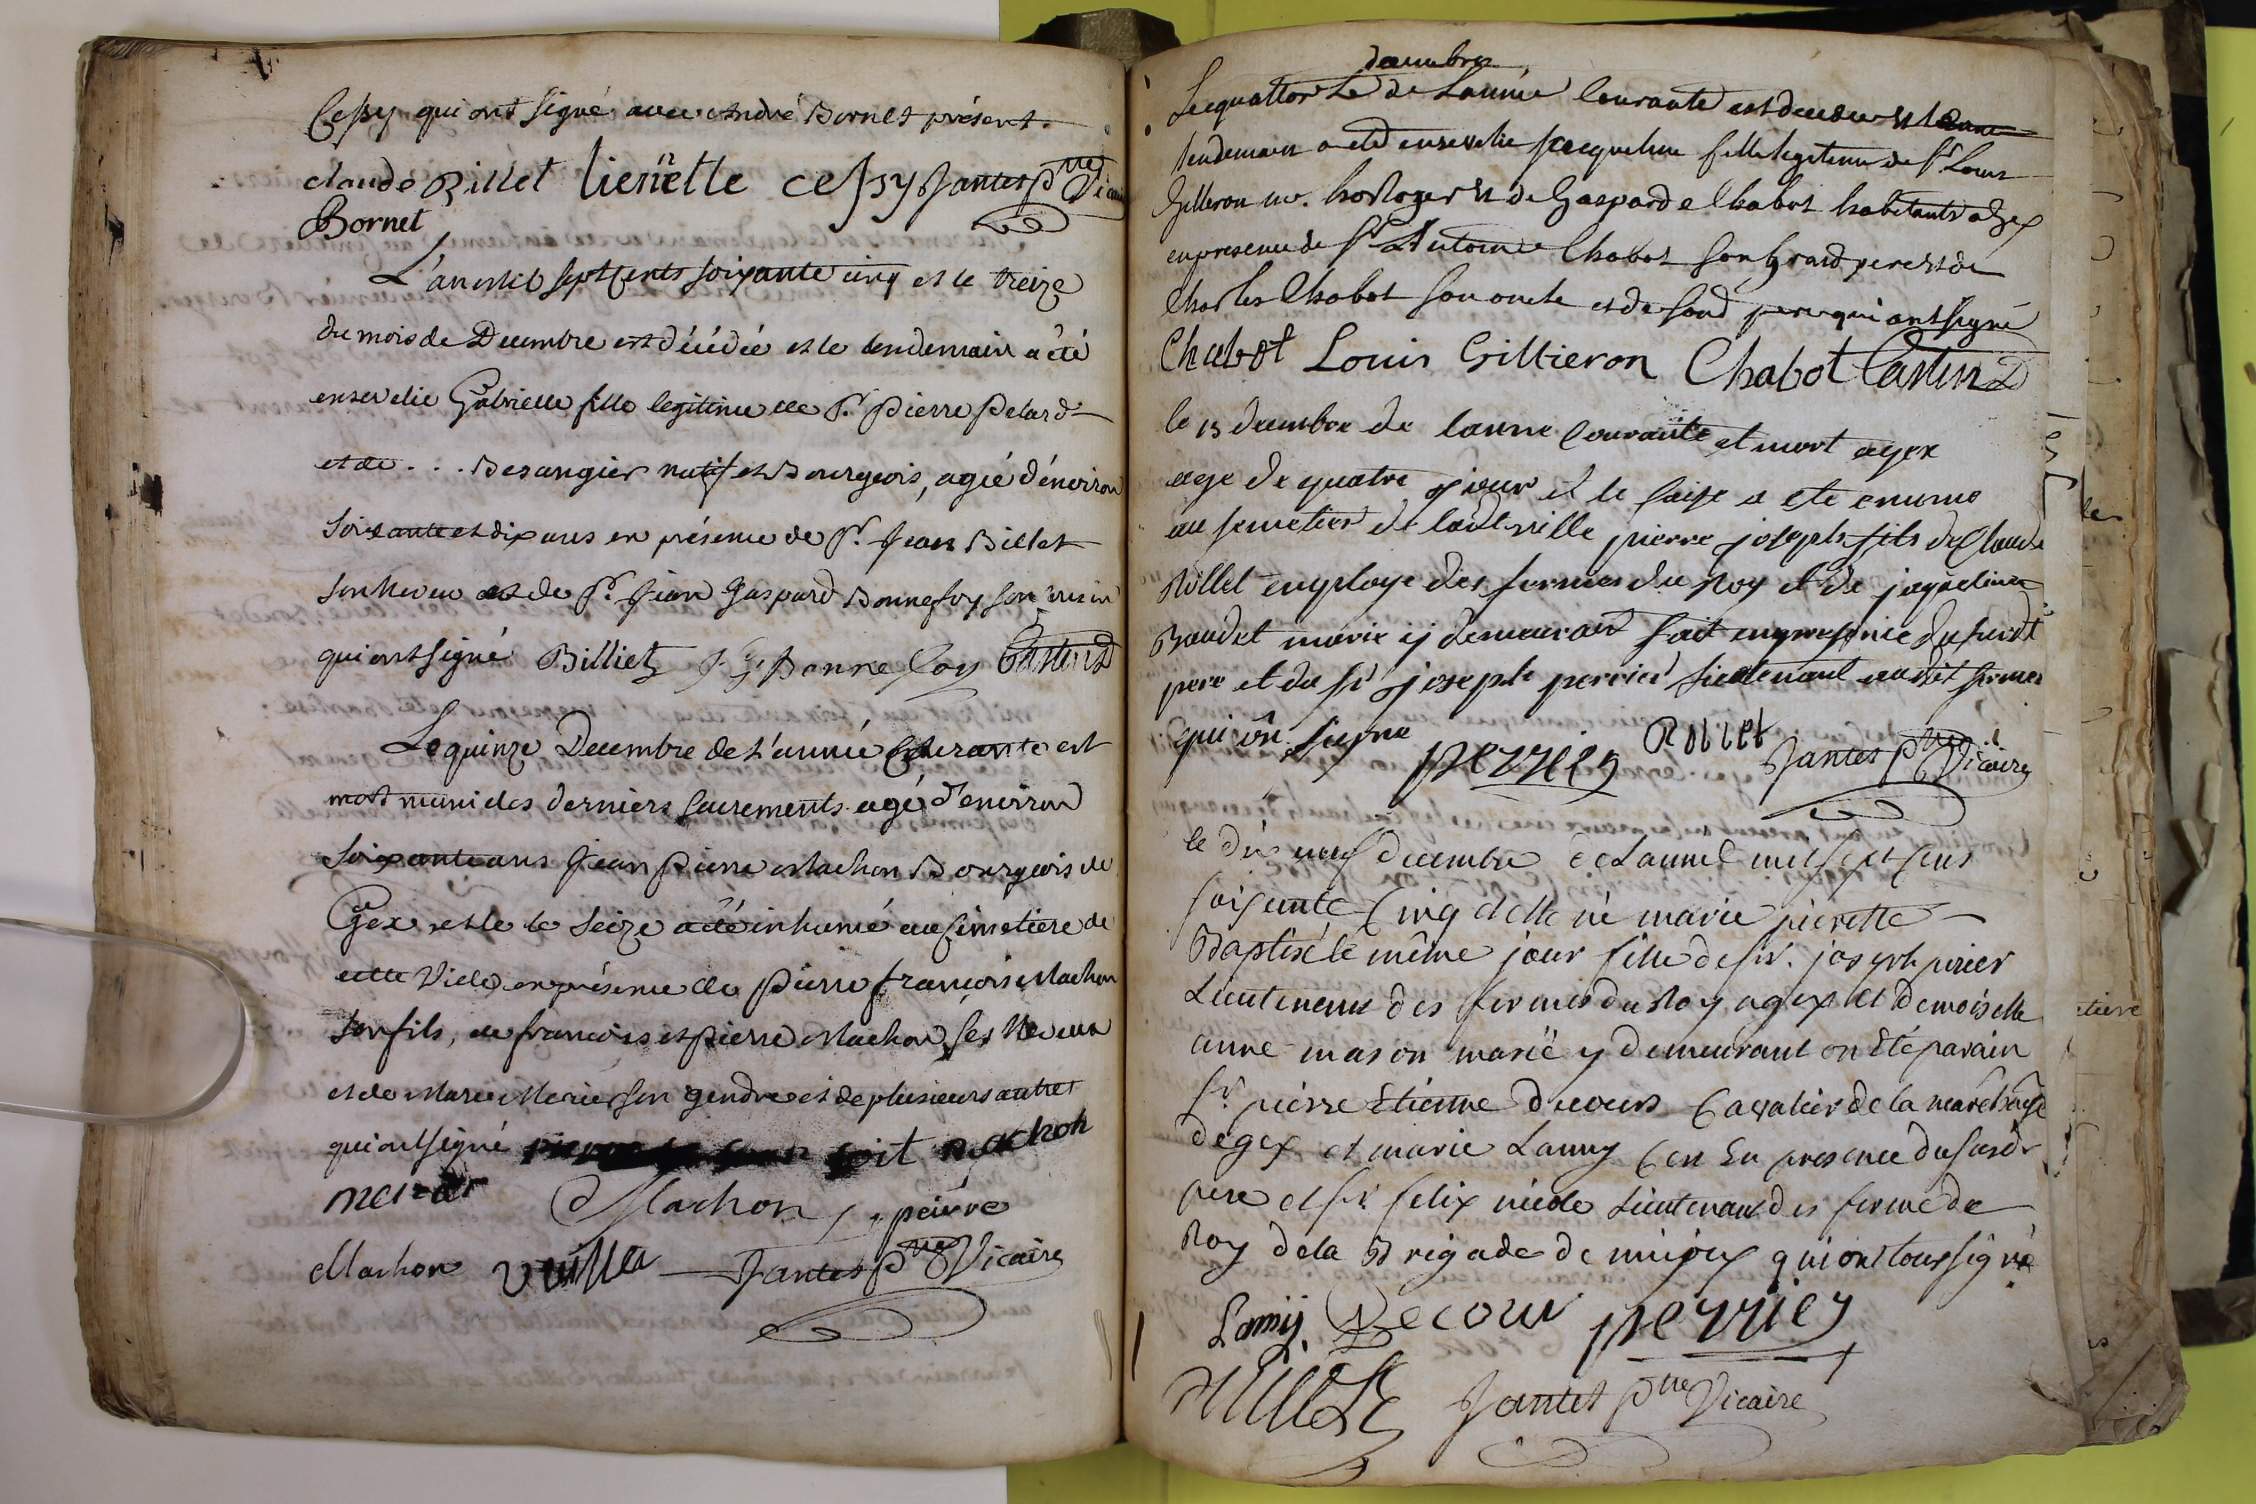 Cessy qui ont signé avec André Bornet présent.
claude Billet lienette cessy Jantet Ptre Vicaire
Bornet
L'an mil sept cents soixante cinq et le treize
du mois de Decembre est décédée et le lendemain a été
ensevelie Gabrielle fille legitime de Sr. pierre Pelard
et de . . . Besangier natif et Bourgeois, agée d'environ
soixante et dix ans en présence de Sr. Jean Billet
son neveu et de Sr. Jean Gaspard Bonnefoy son
qui ont signé Billiet J. G. Bonnefoy Castin
Le quinze Decembre de l'année Courante est
mort muni des derniers sacrements agé d'environ
soixante ans Jean Pierre Machon Bourgeois de
Gex et le seize a été inhumé au Cimetiere de
cette Ville en présence de pierre françois Machon
son fils, de françois et pierre Machon ses Neveux
et de Marie Merier son gendre et de plusieurs autres
qui ont signé soit machon
merier Machon pierre
Machon Vuillet Jantet Ptre Vicaire
decembre
Le quattorze de L'année Courante est decedee et
lendemain a eté ensevelie Jacqueline fille legitime de Sr Louis
Gilleron horloger et de Gasparde Chabot habitants a Gex
en presence de Sr Antoine Chabot son Grand pere et de
Charles Chabot son oncle et de son d pere qui ont signé
Chabot Louis Gillieron Chabot Castin
le 15 decembre de lanne Courante et mort a gex
age de quatre jour et le saise a ete enume
au semetier de ladt ville pierre joseph fils de Claude
Rollet employe des fermes du Roy et de jaqueline
Baudet marie ij demeurant fait en presence du susdt
pere et du sr joseph perrier lieutenant audit fermes
qui on signe perrier Rollet Jantet Ptre Vicaire
le dix neuf decembre de Lannee mil sept cens
soisente Cinq et elle né marie pierette
Baptisé le même jour fille de sr. joseph perier
Lieutenant des fermes du Roy a gex et Demoiselle
anne mason marié y demeurant on été parain
Sr pierre Etienne Decours Cavalier de la marêchausé
de gex et marie Lamy Cen En presence du susdt
pere et sr felix nicole Lieutenant des ferme de
Roy de la Brigade de mijoux qui ont tous signé
Lamy Decour perrier
Jantet Ptre Vicaire